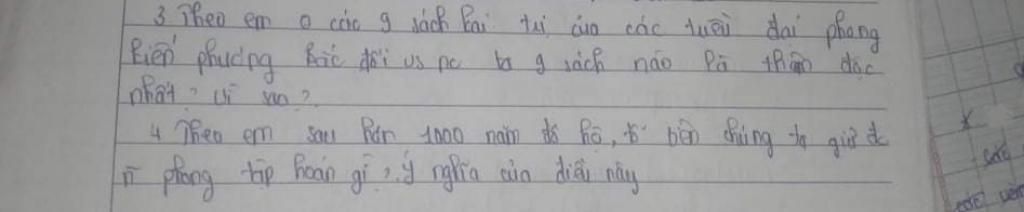 3. Theo em o các g sách cai trị của các triều đại phong
kiến phương Bắc đối vs nc ta g sách nào là thâm độc
nhất? Vì sao?
4. Theo em sau hơn 1000 năm đô hộ, tổ tiên chúng ta giữ đc
n̄ phong tập hoán gì? Ý nghĩa của điều này